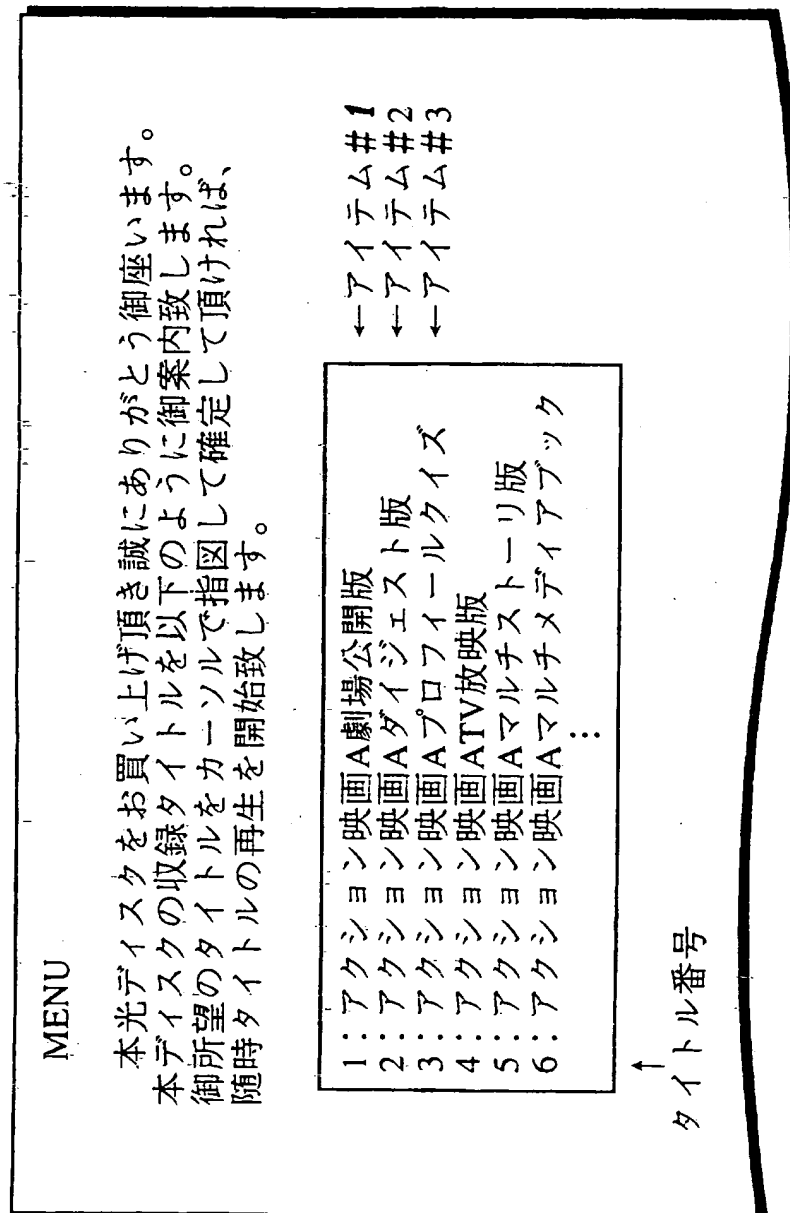 MENU
本光ディスクをお買い上げ頂き誠にありがとう御座います。
本ディスクの収録タイトルを以下のように御案内致します。
御所望のタイトルをカーソルで指図して確定して頂ければ、
随時タイトルの再生を開始致します。
1:アクション映画A劇場公開版 ←アイテム#1
2:アクション映画Aダイジェスト版 ←アイテム#2
3:アクション映画Aプロフィールクイズ ←アイテム#3
4:アクション映画ATV放映版
5:アクション映画Aマルチストーリ版
6:アクション映画Aマルチメディアブック
⋮
↑
タイトル番号